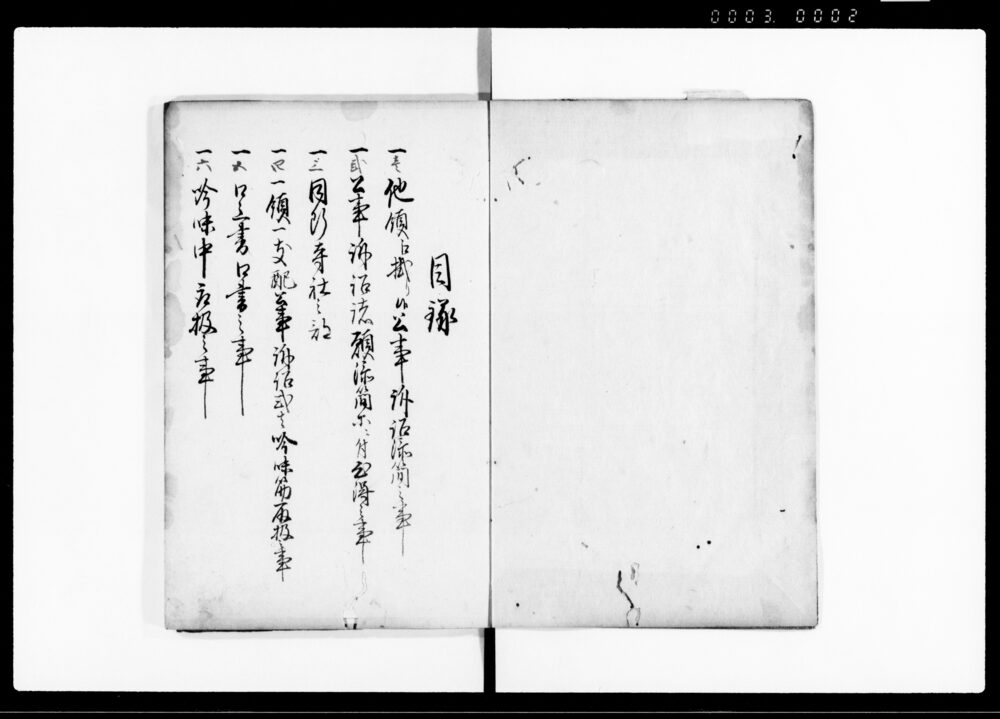 0003. 0002
目録
一壱 他領江掛り候公事訴訟添簡之事
一弐 公事訴訟諸願添簡尓付心得之事
一三 同断寺社之部
一四 一領一支配公事訴訟或者吟味筋取扱事
一五 口上書口書之事
一六 吟味中取扱之事